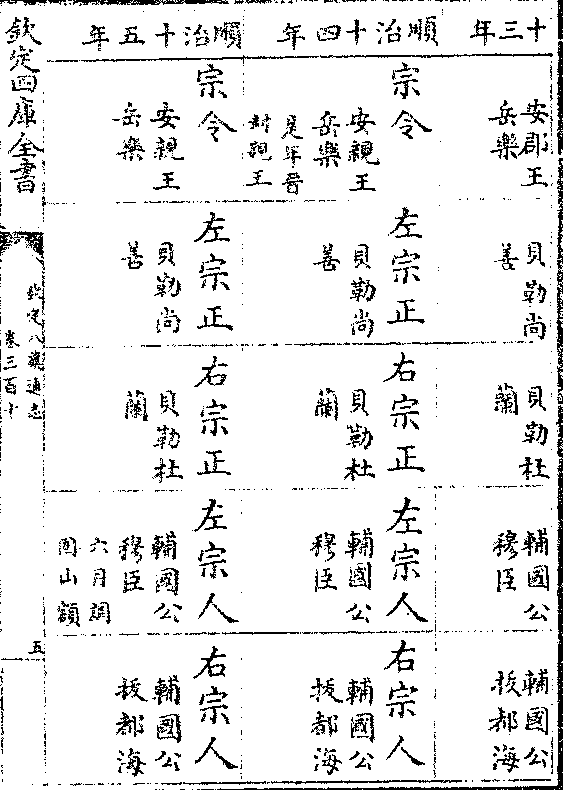 十三年
安郡王
岳樂
貝勒尚
善
貝勒杜
蘭
輔國公
穆臣
輔國公
拔都海
順治十四年
宗令
安親王
岳樂
是年晉
封親王
左宗正
貝勒尚
善
右宗正
貝勒杜
蘭
左宗人
輔國公
穆臣
右宗人
輔國公
拔都海
順治十五年
宗令
安親王
岳樂
左宗正
貝勒尚
善
右宗正
貝勒杜
蘭
左宗人
輔國公
穆臣
六月調
固山額
右宗人
輔國公
拔都海
欽定四庫全書
欽定八旗通志
卷三百十
五